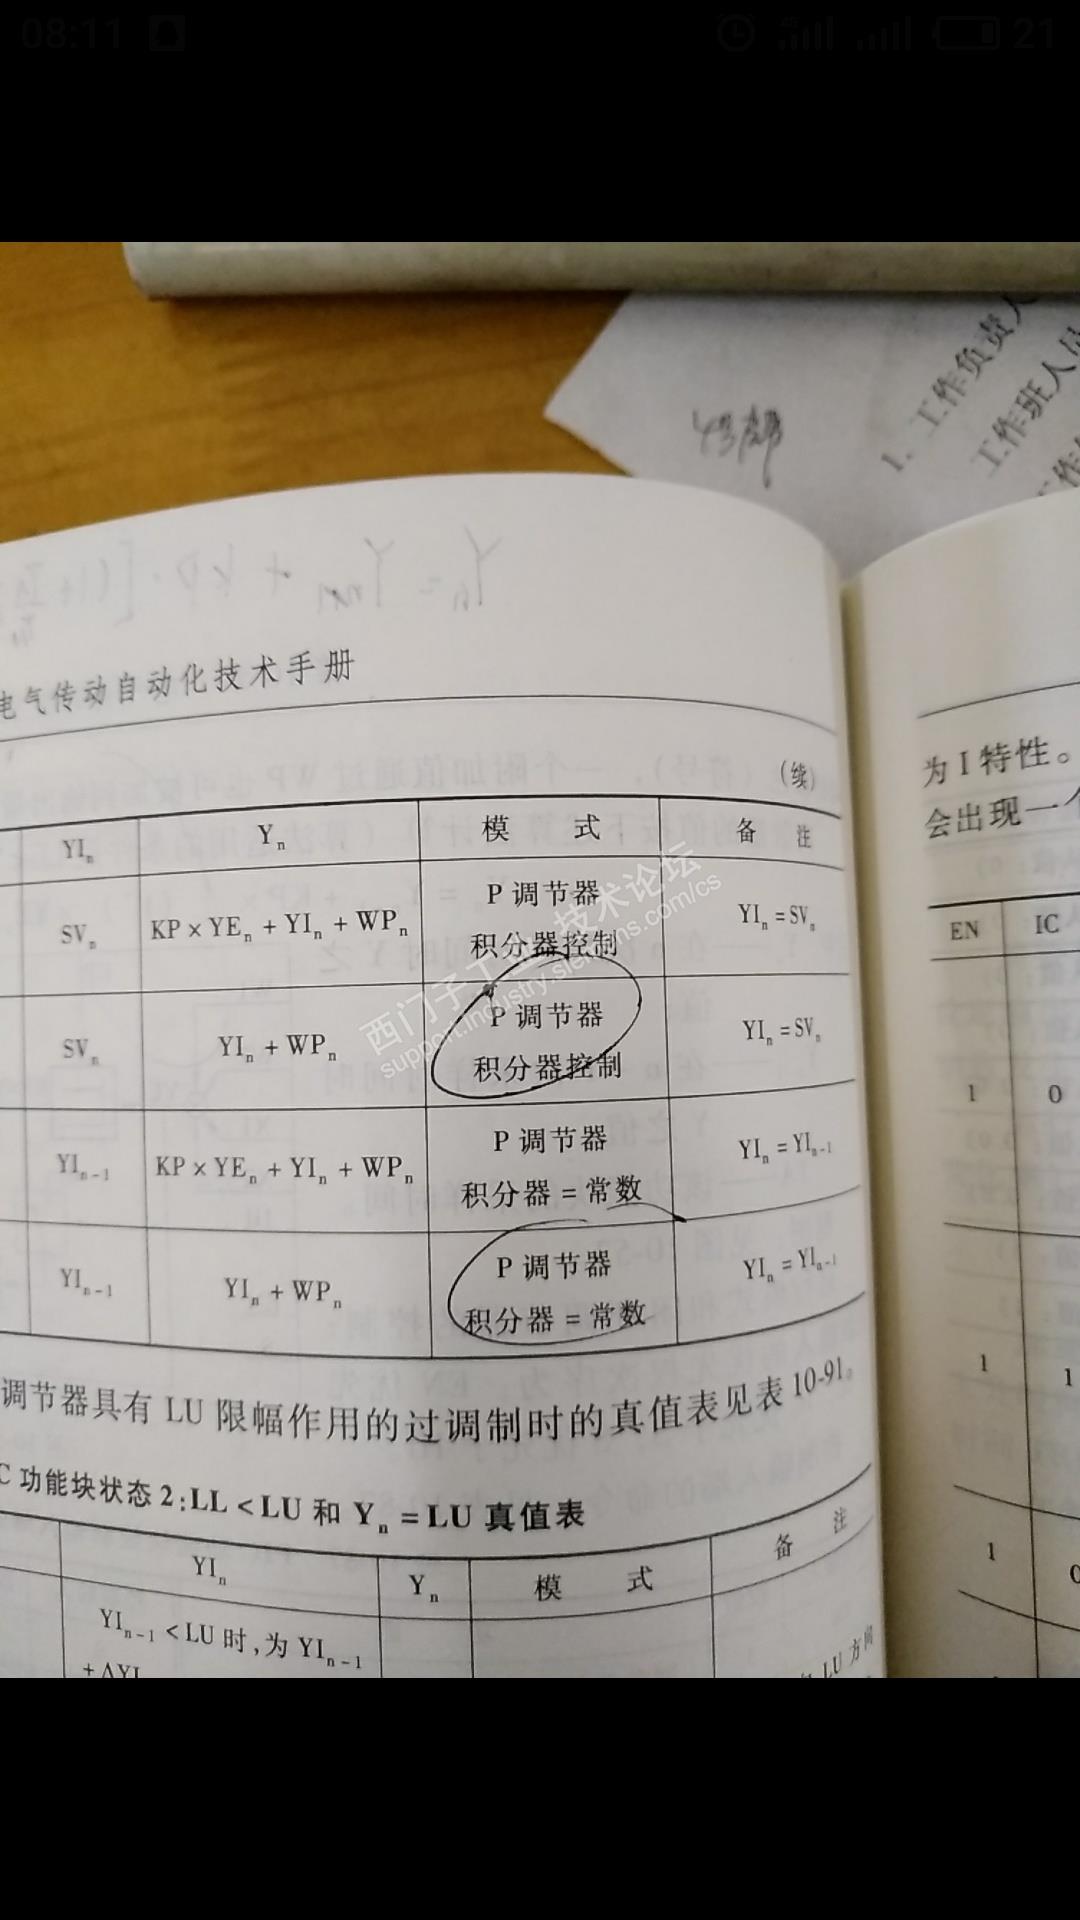 08:11
4G
21
1. 工作负责人
工作班人员
工作
电气传动自动化技术手册
(续)
YIn Yn 模 式 备 注
SVn KP×YEn+YIn+WPn P 调节器 YIn=SVn
积分器控制
SVn YIn+WPn P 调节器 YIn=SVn
积分器控制
YIn-1 KP×YEn+YIn+WPn P 调节器 YIn=YIn-1
积分器=常数
YIn-1 YIn+WPn P 调节器 YIn=YIn-1
积分器=常数
调节器具有 LU 限幅作用的过调制时的真值表见表 10-91。
C 功能块状态 2:LL<LU 和 Yn=LU 真值表
YIn Yn 模 式 备 注
YIn-1<LU 时,为 YIn-1
+ΔYI
LU 方向
为 I 特性。
会出现一个
EN IC
1 0
1 1
1 0
西门子工业技术论坛
support.industry.siemens.com/cs